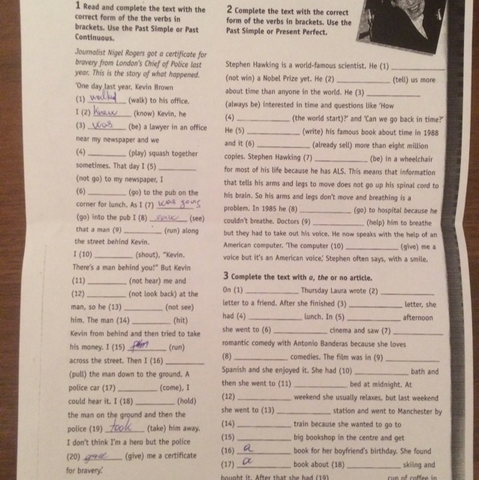 1 Read and complete the text with the
correct form of the the verbs in
brackets. Use the Past Simple or Past
Continuous.
Journalist Nigel Rogers got a certificate for
bravery from London's Chief of Police last
year. This is the story of what happened.
'One day last year, Kevin Brown
(1) walked (walk) to his office.
I (2) knew (know) Kevin, he
(3) was (be) a lawyer in an office
near my newspaper and we
(4) ________ (play) squash together
sometimes. That day I (5) ________
(not go) to my newspaper. I
(6) ________ (go) to the pub on the
corner for lunch. As I (7) was going
(go) into the pub I (8) ________ (see)
that a man (9) ________ (run) along
the street behind Kevin.
I (10) ________ (shout), "Kevin.
There's a man behind you!" But Kevin
(11) ________ (not hear) me and
(12) ________ (not look back) at the
man, so he (13) ________ (not see)
him. The man (14) ________ (hit)
Kevin from behind and then tried to take
his money. I (15) ________ (run)
across the street. Then I (16) ________
(pull) the man down to the ground. A
police car (17) ________ (come), I
could hear it. I (18) ________ (hold)
the man on the ground and then the
police (19) took (take) him away.
I don't think I'm a hero but the police
(20) gave (give) me a certificate
for bravery.'
2 Complete the text with the correct
form of the verbs in brackets. Use the
Past Simple or Present Perfect.
Stephen Hawking is a world-famous scientist. He (1) ________
(not win) a Nobel Prize yet. He (2) ________ (tell) us more
about time than anyone in the world. He (3) ________
(always be) interested in time and questions like 'How
(4) ________ (the world start)?' and 'Can we go back in time?'
He (5) ________ (write) his famous book about time in 1988
and it (6) ________ (already sell) more than eight million
copies. Stephen Hawking (7) ________ (be) in a wheelchair
for most of his life because he has ALS. This means that information
that tells his arms and legs to move does not go up his spinal cord to
his brain. So his arms and legs don't move and breathing is a
problem. In 1985 he (8) ________ (go) to hospital because he
couldn't breathe. Doctors (9) ________ (help) him to breathe
but they had to take out his voice. He now speaks with the help of an
American computer. 'The computer (10) ________ (give) me a
voice but it's an American voice,' Stephen often says, with a smile.
3 Complete the text with a, the or no article.
On (1) ________ Thursday Laura wrote (2) ________
letter to a friend. After she finished (3) ________ letter, she
had (4) ________ lunch. In (5) ________ afternoon
she went to (6) ________ cinema and saw (7) ________
romantic comedy with Antonio Banderas because she loves
(8) ________ comedies. The film was in (9) ________
Spanish and she enjoyed it. She had (10) ________ bath and
then she went to (11) ________ bed at midnight. At
(12) ________ weekend she usually relaxes, but last weekend
she went to (13) ________ station and went to Manchester by
(14) ________ train because she wanted to go to
(15) ________ big bookshop in the centre and get
(16) a book for her boyfriend's birthday. She found
(17) a book about (18) ________ skiing and
bought it. After that she had (19) ________ cup of coffee in